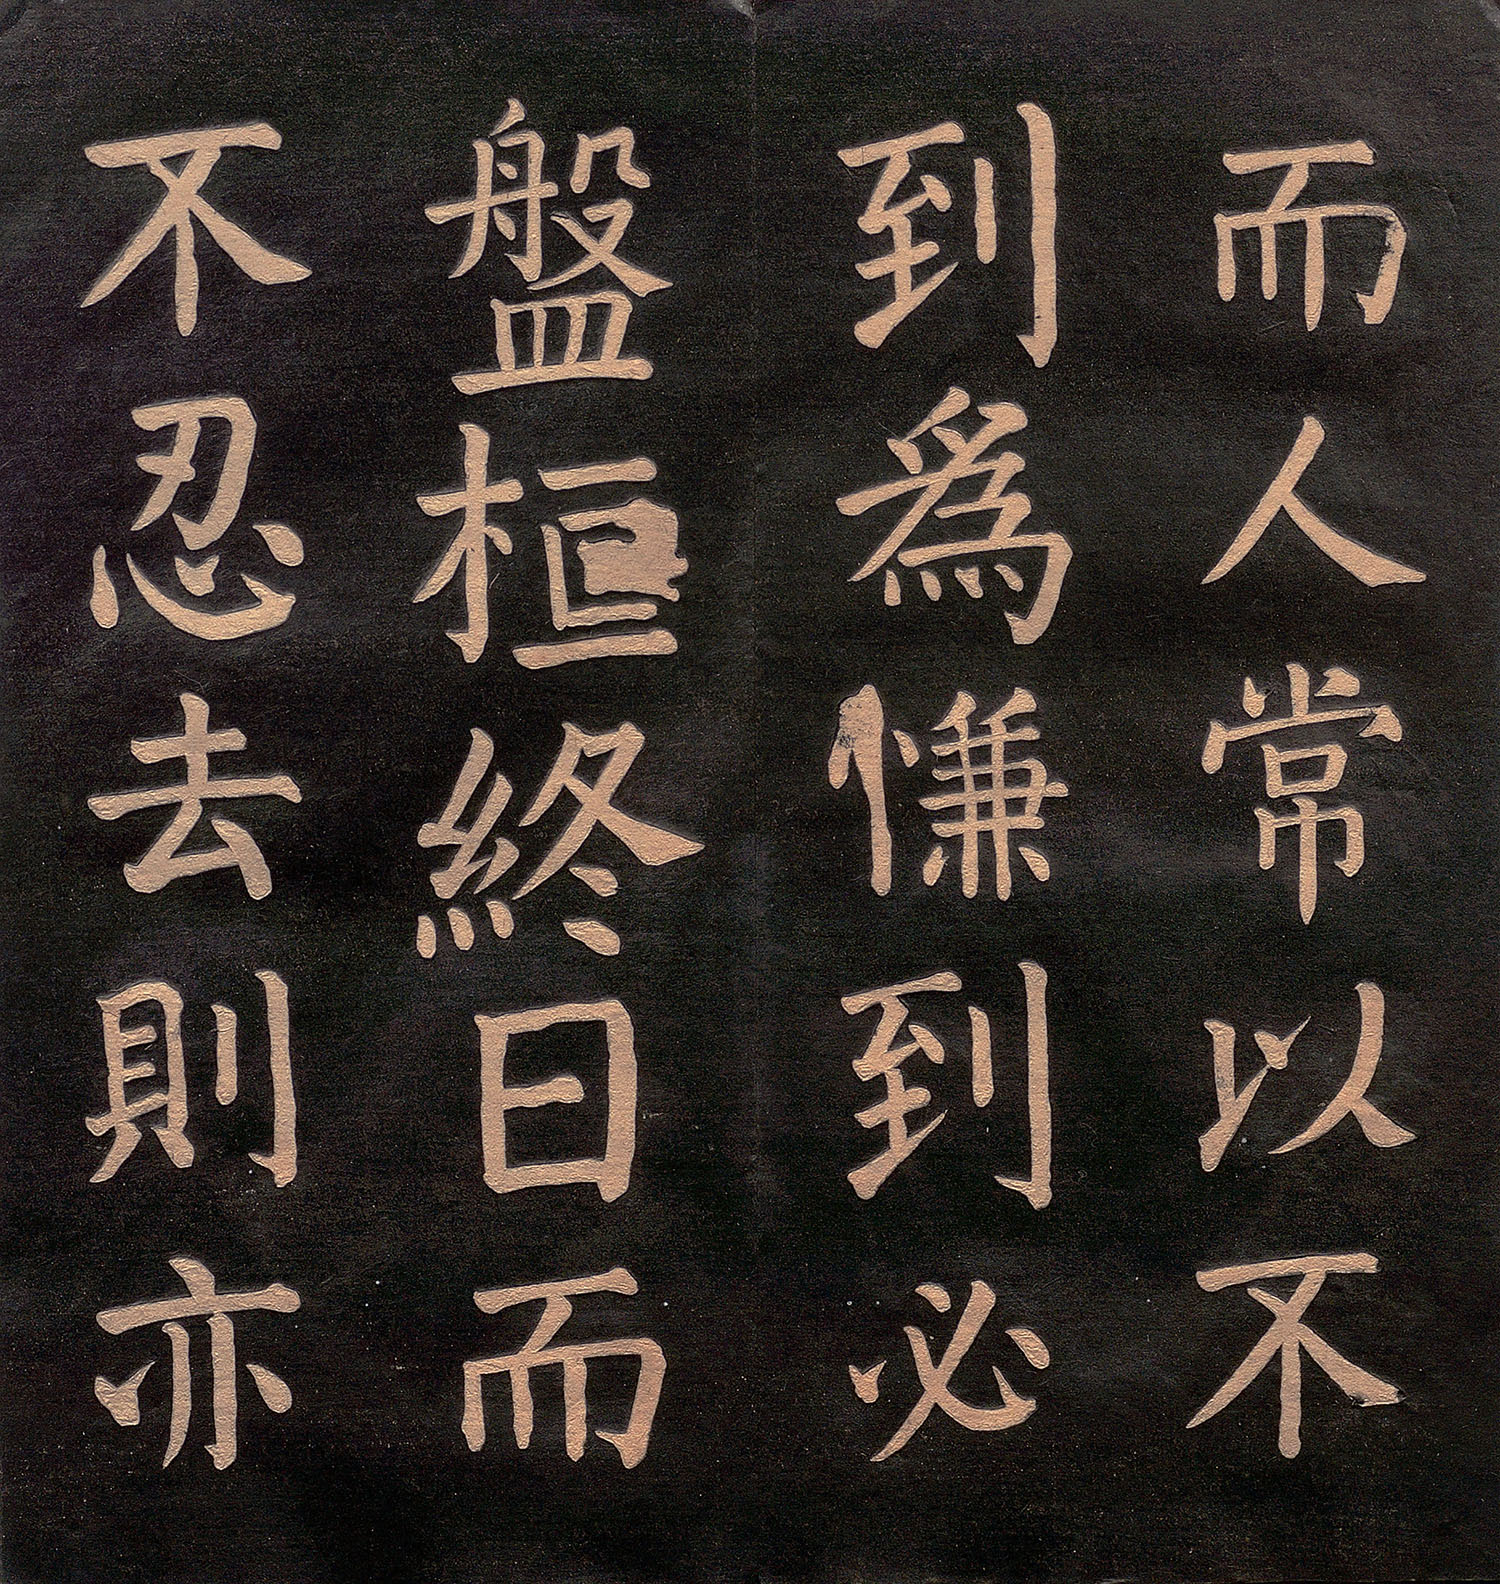 而人常以不
到為慊到必
盤桓終日而
不忍去則亦